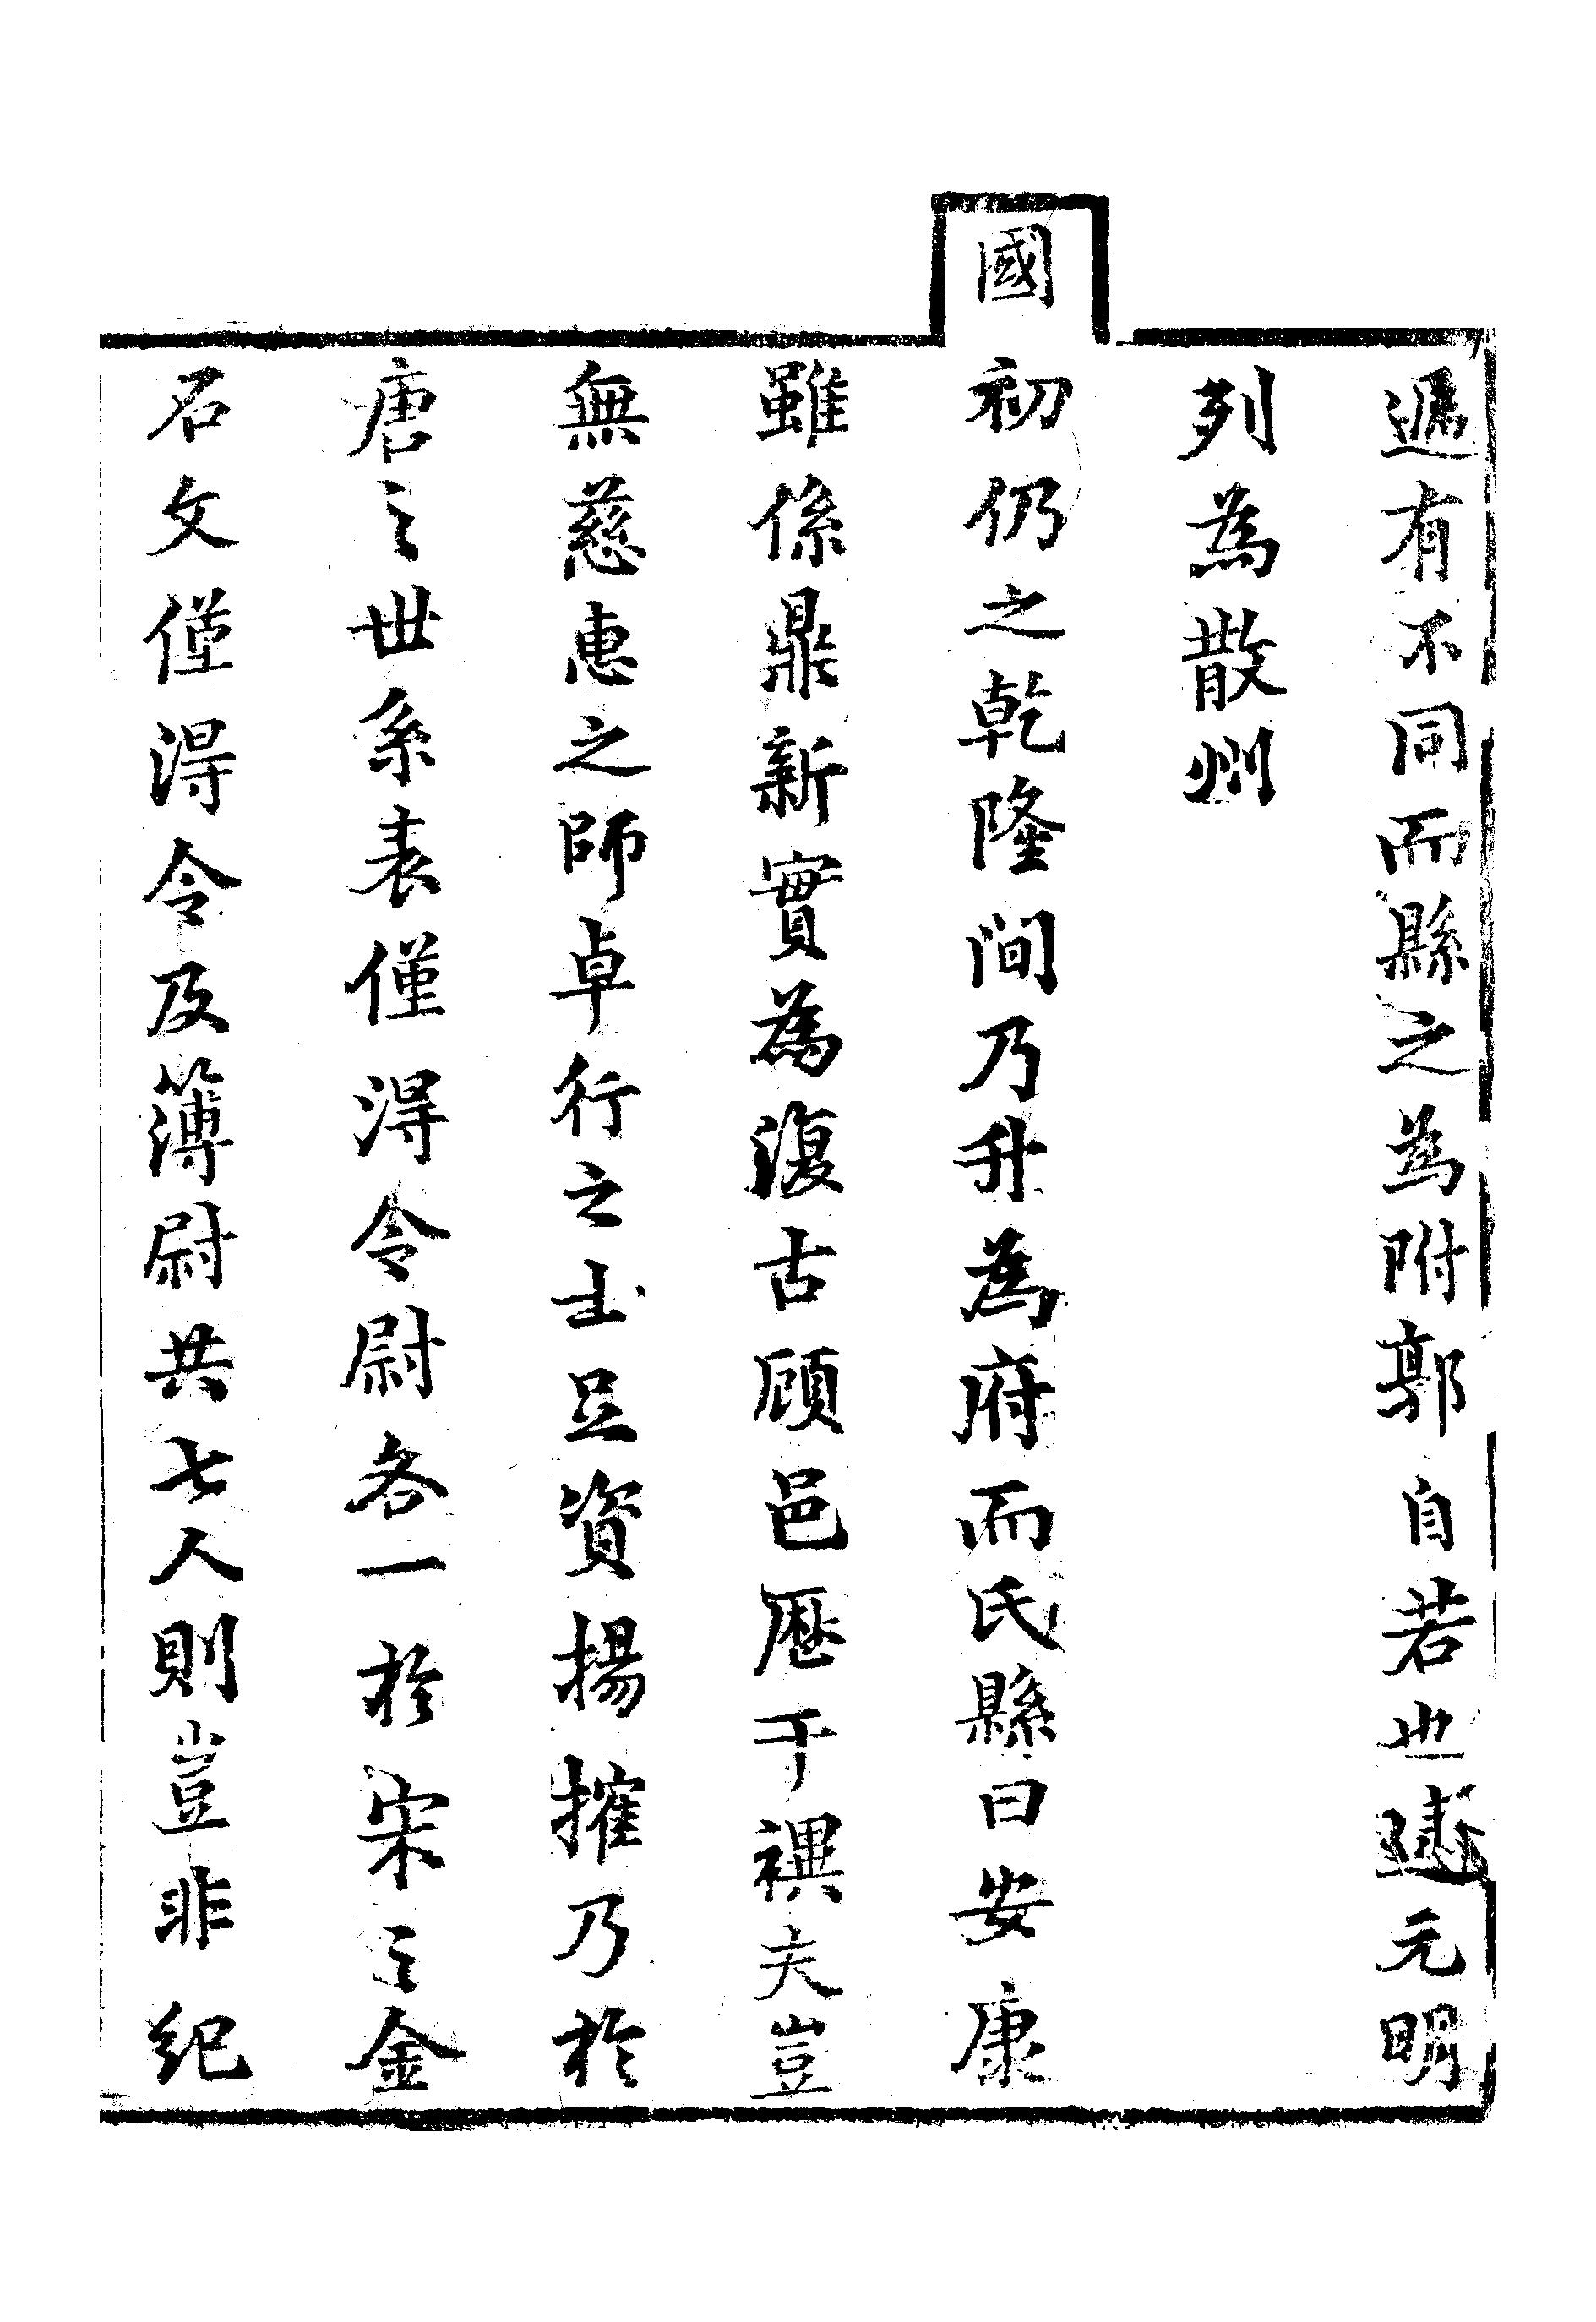 遞有不同而縣之為附郭自若也逮元明
列為散州
國初仍之乾隆間乃升為府而氏縣曰安康
雖係鼎新實為復古顧邑歷于禩夫豈
無慈惠之師卓行之士足資揚搉乃於
唐之世系表僅得令尉各一於宋之金
石文僅得令及簿尉共七人則豈非紀